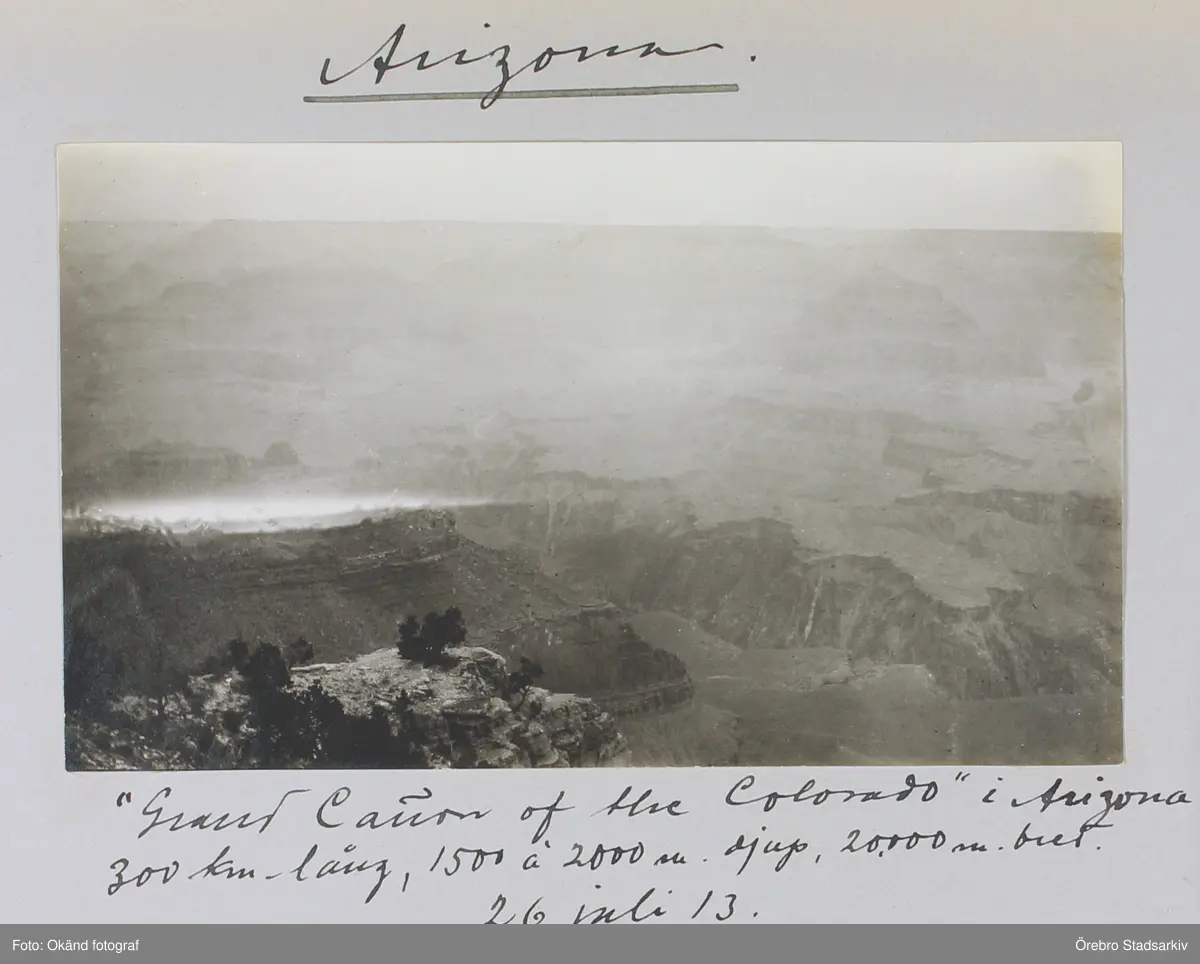 Arizona.
"Grand Cañon of the Colorado" i Arizona
300 km lång, 1500 à 2000 m. djup, 20,000 m. bred.
26 juli 13.
Foto: Okänd fotograf
Örebro Stadsarkiv